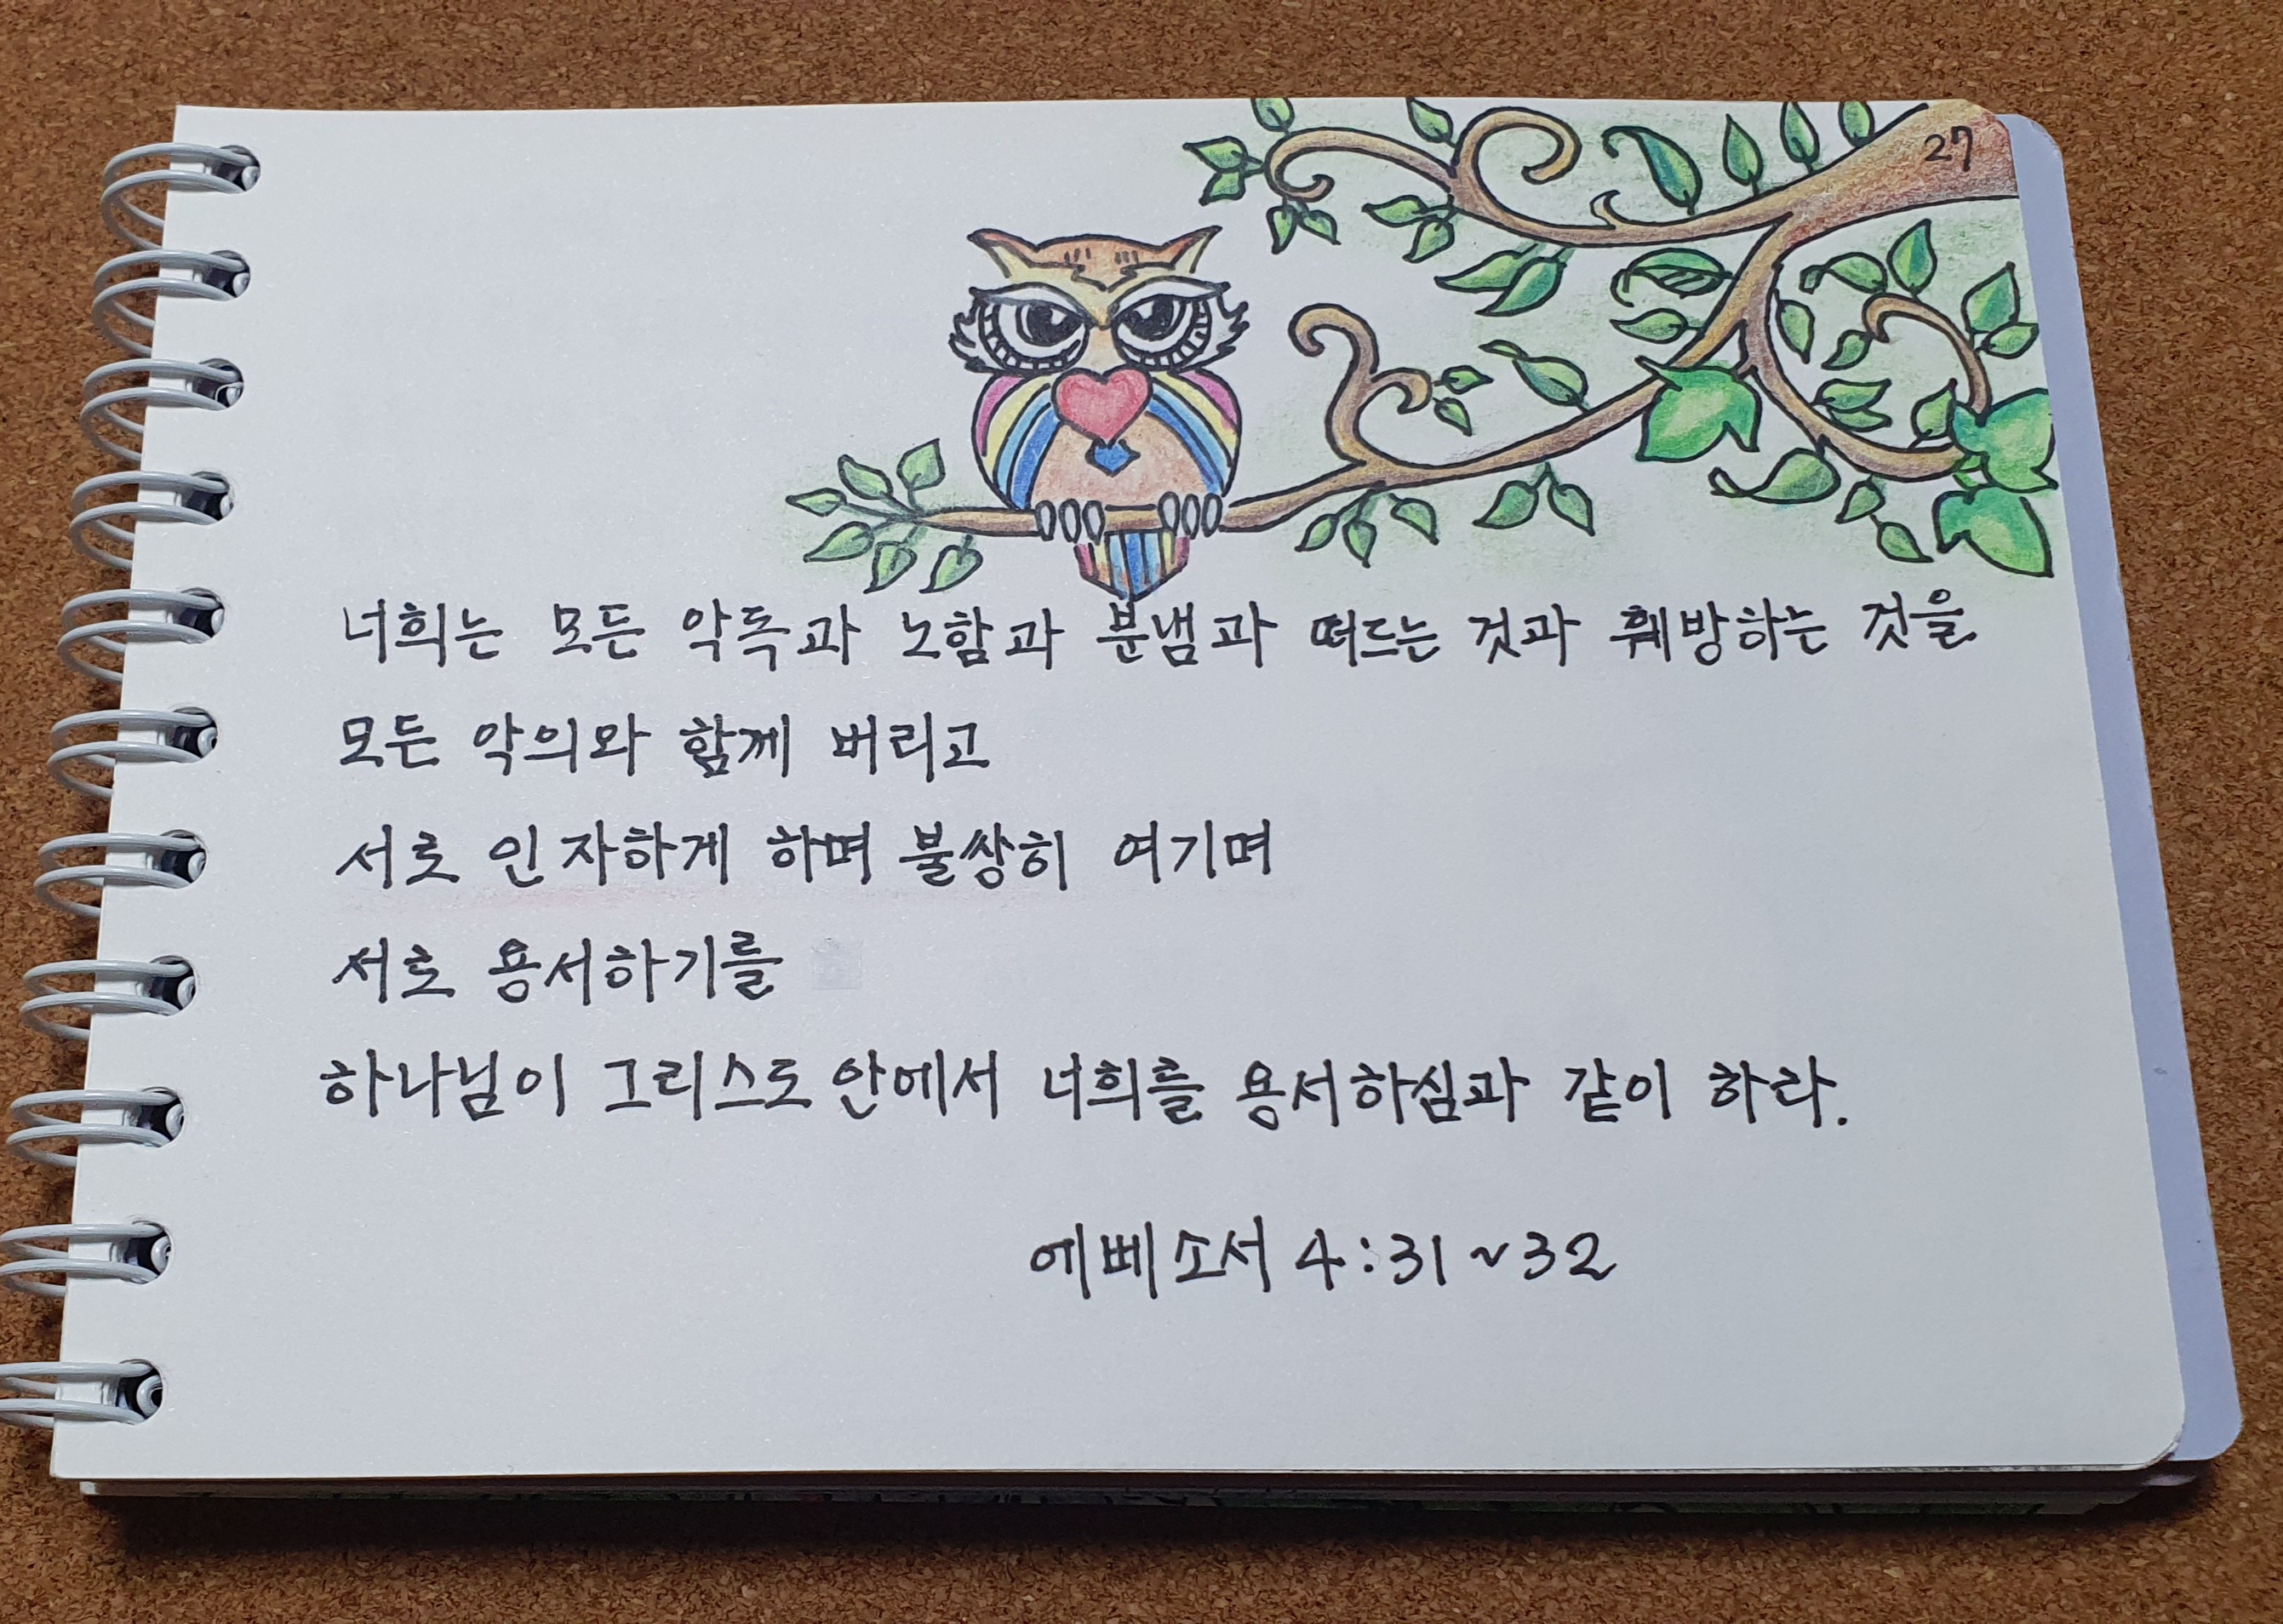 27
너희는 모든 악독과 노함과 분냄과 떠드는 것과 훼방하는 것을
모든 악의와 함께 버리고
서로 인자하게 하며 불쌍히 여기며
서로 용서하기를
하나님이 그리스도 안에서 너희를 용서하심과 같이 하라.
에베소서 4:31~32